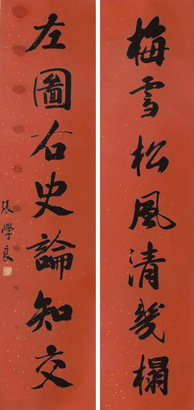 梅雪松風清几榻
左圖右史論知交
張學良